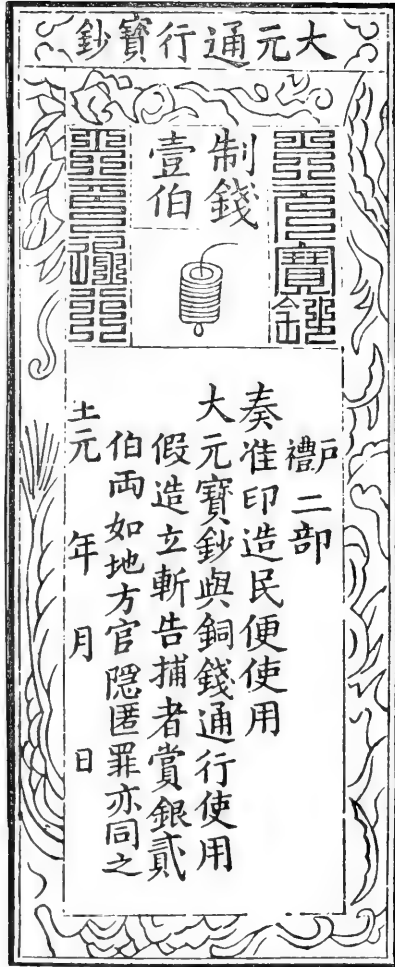 大元通行寶鈔
制錢
壹伯
戶禮二部
奏准印造民便使用
大元寶鈔與銅錢通行使用
假造立斬告捕者賞銀貳
伯両如地方官隠匿罪亦同之
元 年 月 日